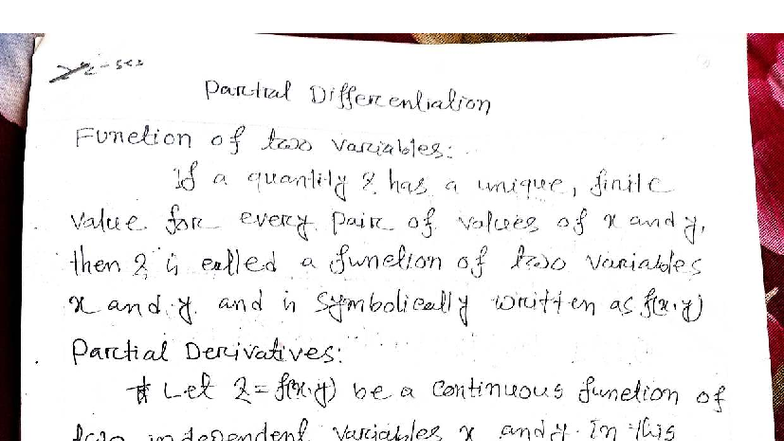 Partial Differentiation
Function of two variables:
If a quantity z has a unique, finite
value for every pair of values of x and y,
then z is called a function of two variables
x and y and is symbolically written as f(x,y)
Partial Derivatives:
Let z = f(x,y) be a continuous function of
two independent variables x and y. In this